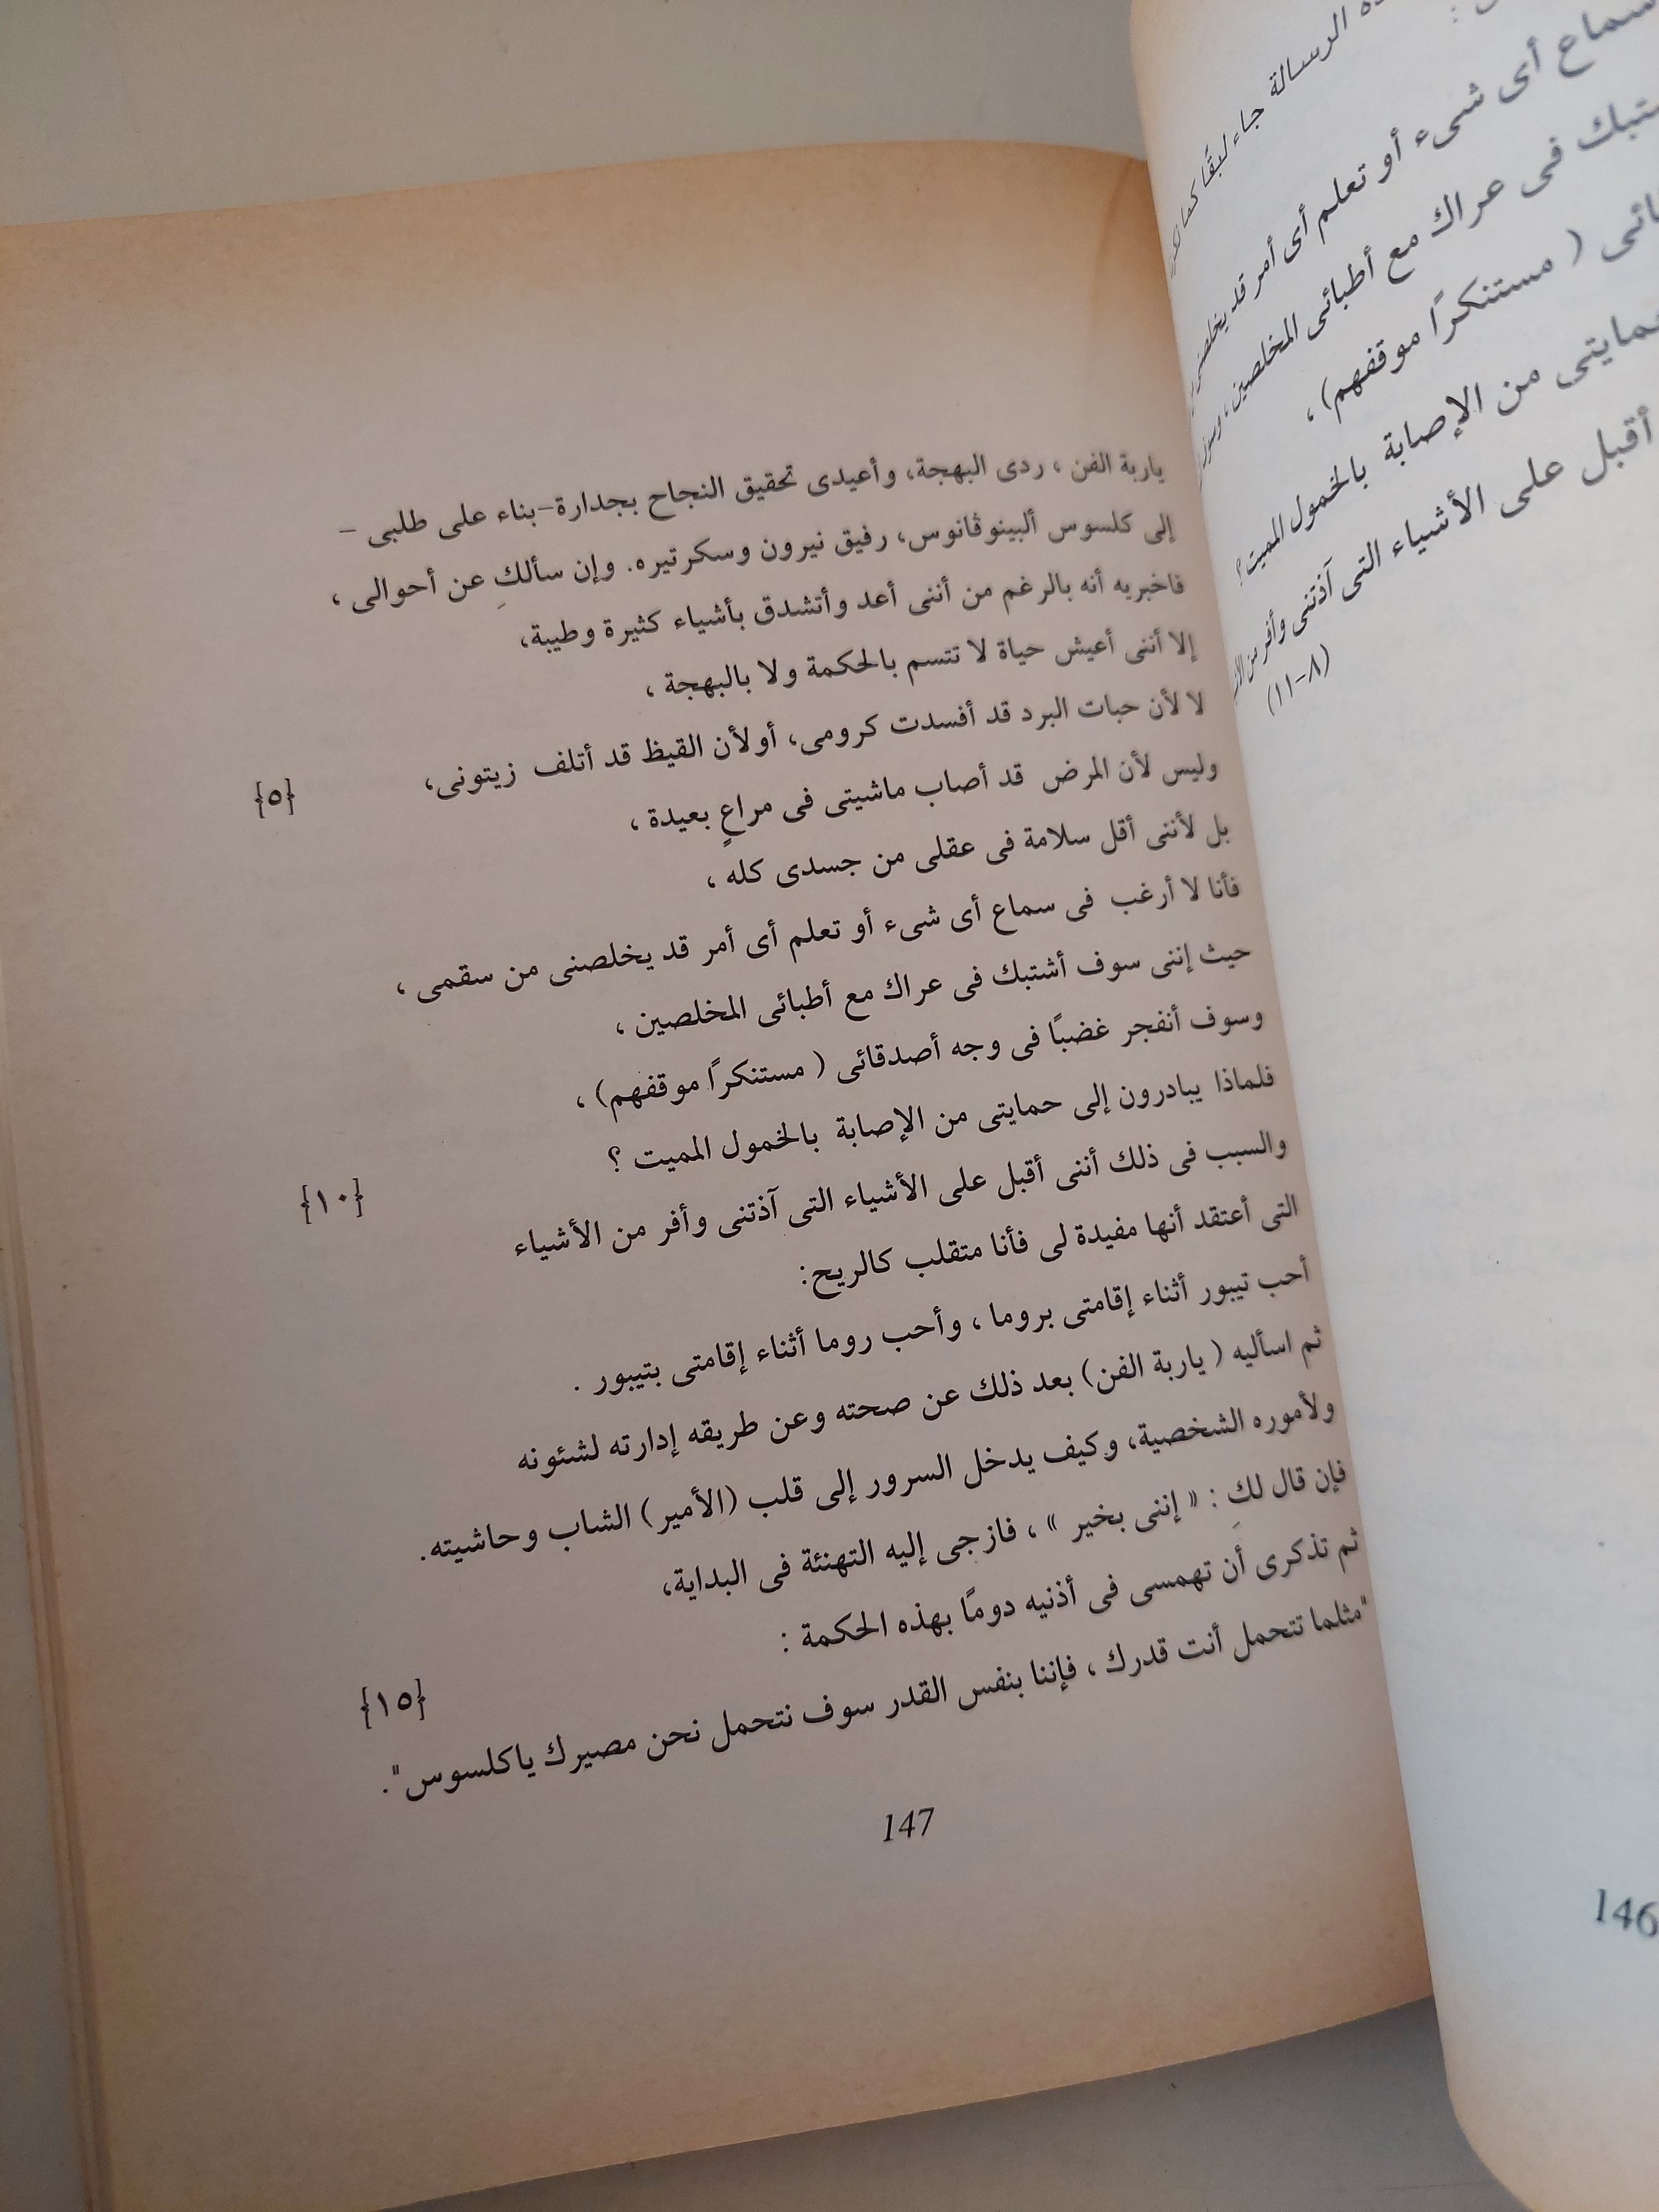 ياربة الفن ، ردى البهجة، وأعيدى تحقيق النجاح بجدارة-بناء على طلبى -
إلى كلسوس ألبينوڤانوس، رفيق نيرون وسكرتيره. وإن سألكِ عن أحوالى ،
فاخبريه أنه بالرغم من أننى أعد وأتشدق بأشياء كثيرة وطيبة،
إلا أننى أعيش حياة لا تتسم بالحكمة ولا بالبهجة ،
لا لأن حبات البرد قد أفسدت كرومى، أولأن القيظ قد أتلف زيتونى، {٥}
وليس لأن المرض قد أصاب ماشيتى فى مراعٍ بعيدة ،
بل لأننى أقل سلامة فى عقلى من جسدى كله ،
فأنا لا أرغب فى سماع أى شىء أو تعلم أى أمر قد يخلصنى من سقمى ،
حيث إننى سوف أشتبك فى عراك مع أطبائى المخلصين ،
وسوف أنفجر غضبًا فى وجه أصدقائى ( مستنكرًا موقفهم) ،
فلماذا يبادرون إلى حمايتى من الإصابة بالخمول المميت ؟ {١٠}
والسبب فى ذلك أننى أقبل على الأشياء التى آذتنى وأفر من الأشياء
التى أعتقد أنها مفيدة لى فأنا متقلب كالريح:
أحب تيبور أثناء إقامتى بروما ، وأحب روما أثناء إقامتى بتيبور .
ثم اسأليه ( ياربة الفن) بعد ذلك عن صحته وعن طريقه إدارته لشئونه
ولأموره الشخصية، وكيف يدخل السرور إلى قلب (الأمير) الشاب وحاشيته.
فإن قال لكِ : « إننى بخير » ، فازجى إليه التهنئة فى البداية، {١٥}
ثم تذكرى أن تهمسى فى أذنيه دومًا بهذه الحكمة :
"مثلما تتحمل أنت قدرك ، فإننا بنفس القدر سوف نتحمل نحن مصيرك ياكلسوس".
147
الرسالة جاء لبقًا كما
سماع أى شىء أو تعلم أى أمر قد يخلصنى
فى عراك مع أطبائى المخلصين ، وسوف
( مستنكرًا موقفهم) ،
من الإصابة بالخمول المميت ؟
أقبل على الأشياء التى آذتنى وأفر من
(٨-١١)
146